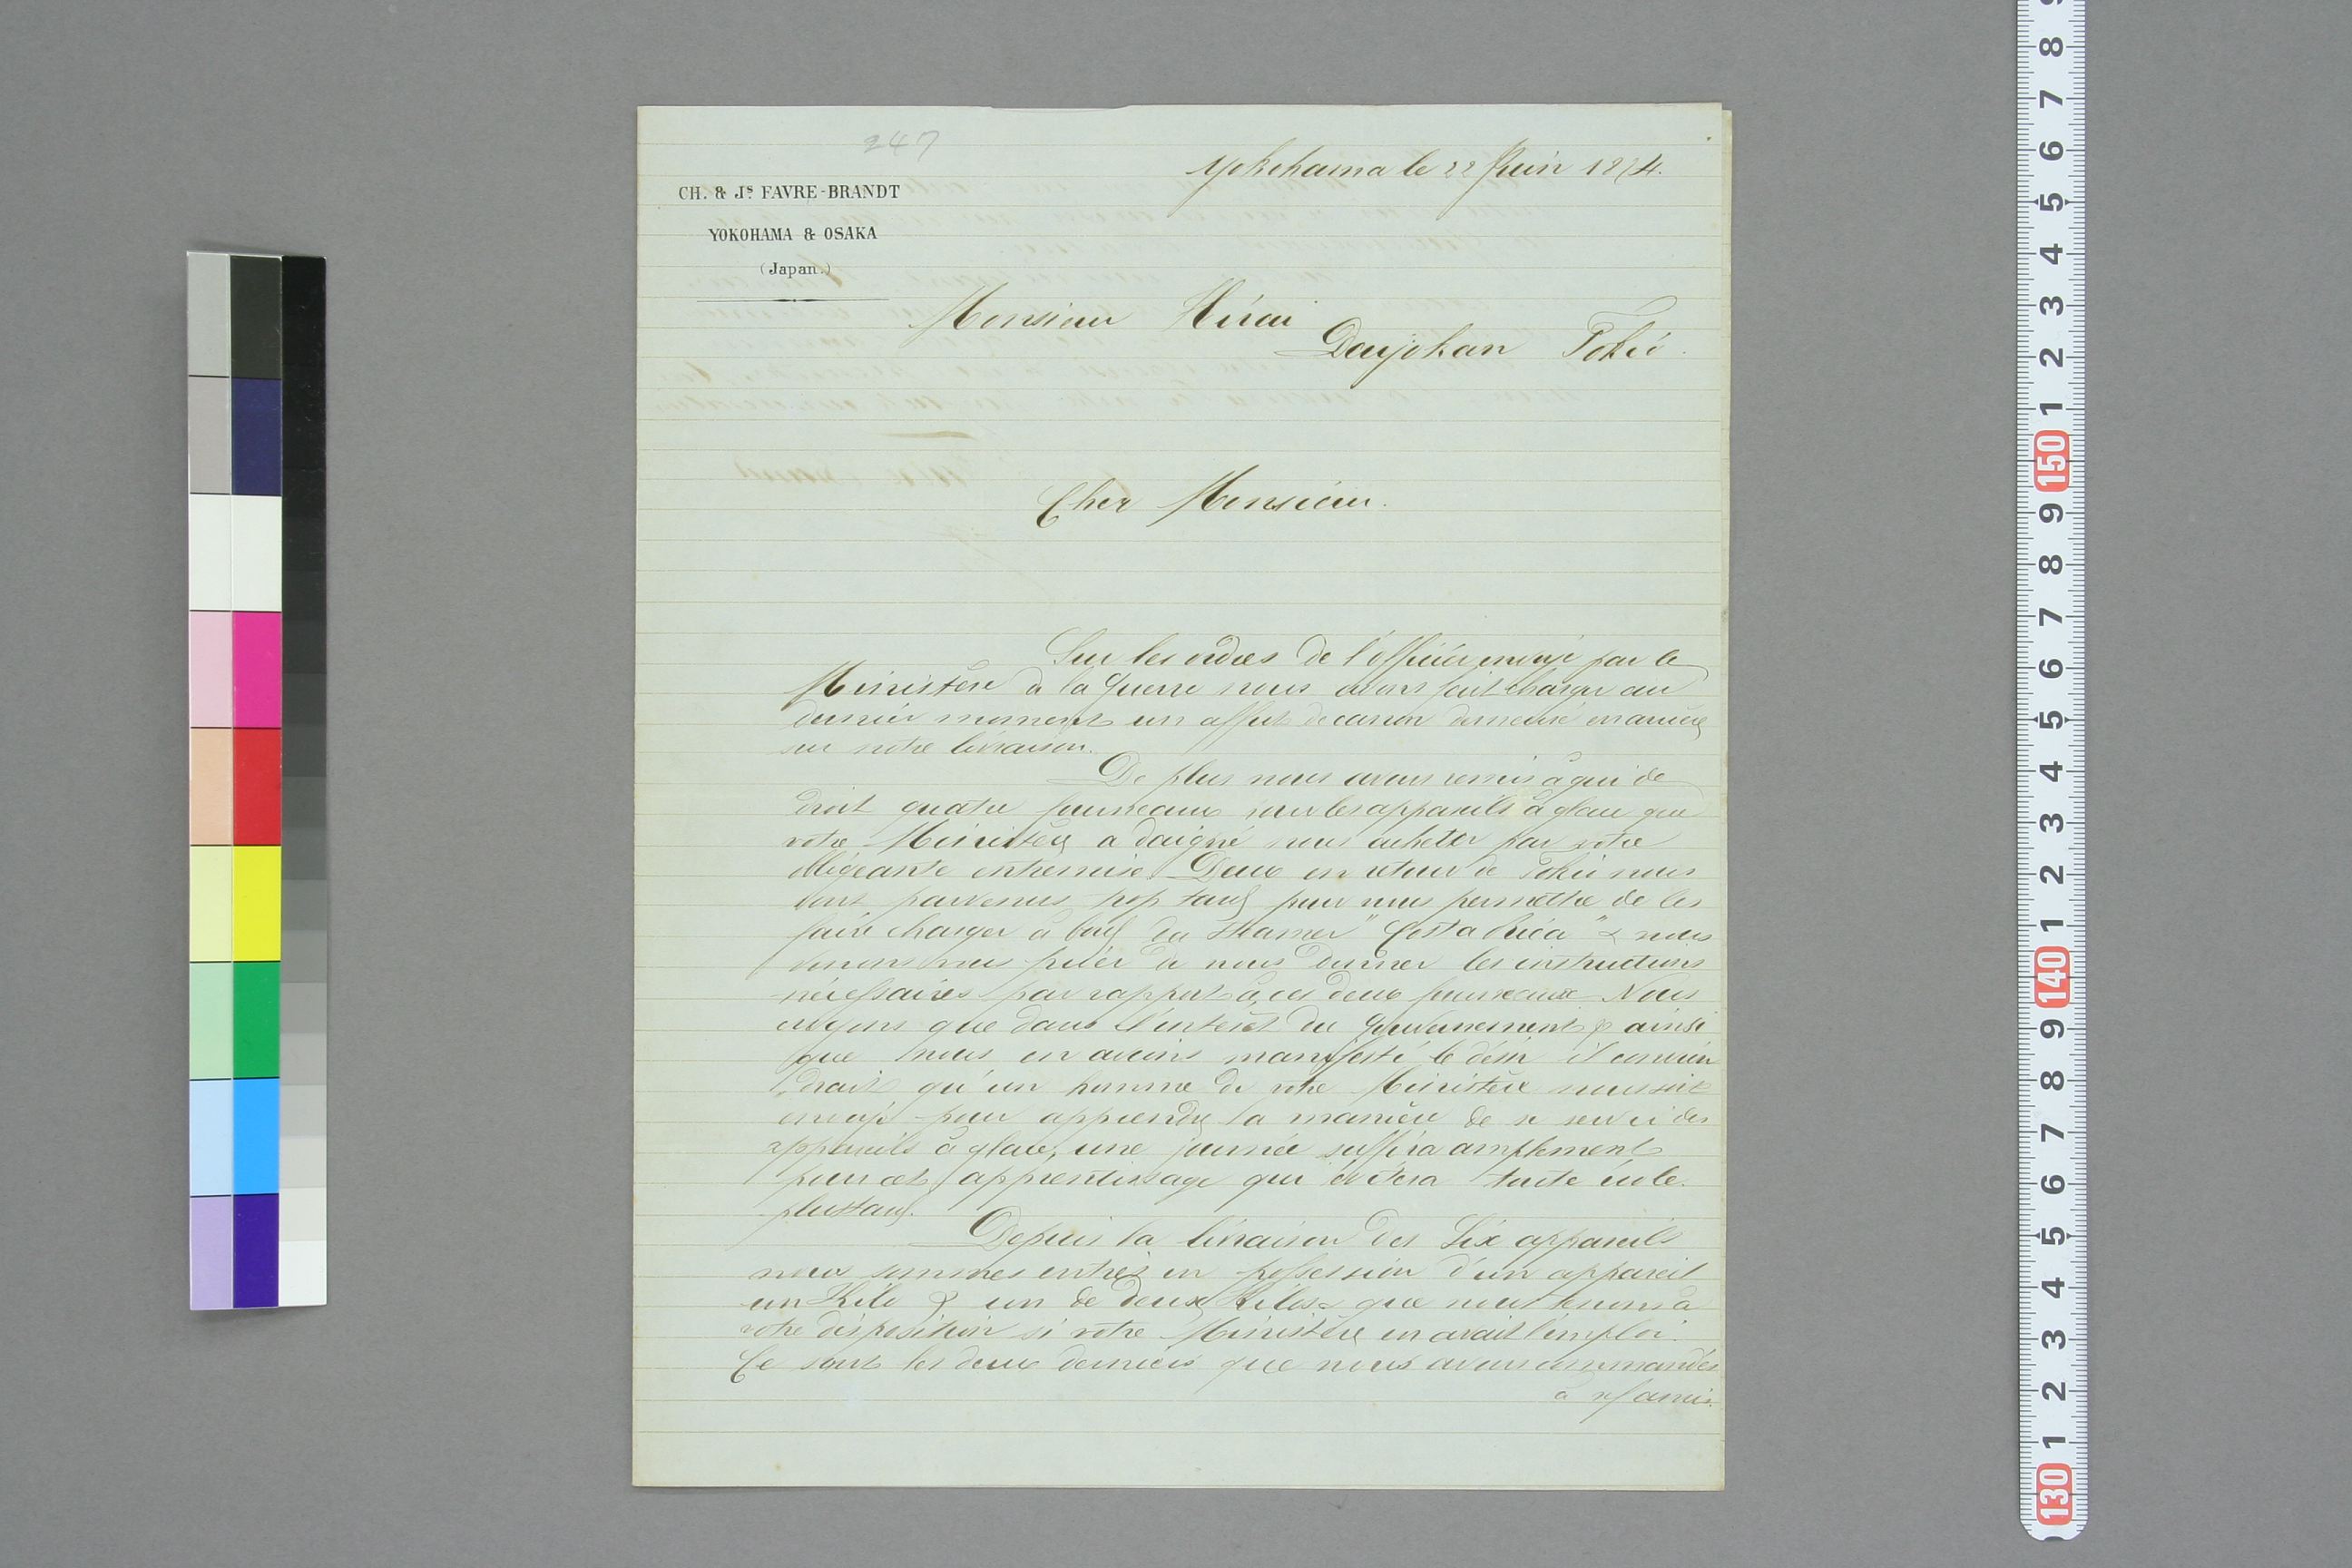 247
Yokohama le 22 Juin 1874.
CH. & Js FAVRE-BRANDT
YOKOHAMA & OSAKA
(Japan.)
Monsieur Hirai
Daijokan Tokio.
Cher Monsieur.
Sur les ordres de l'officier envoyé par le
Ministère de la Guerre nous avons fait charger au
dernier moment un affut de canon demeuré en arrière
sur notre livraison.
De plus nous avons remis à qui de
droit quatre fourneaux pour les appareils à glace que
votre Ministère a daigné nous acheter par votre
obligeante entremise. Deux en retour de Tokio nous
sont parvenus trop tard pour nous permettre de les
faire charger à bord du steamer "Costa Rica" & nous
venons vous prier de nous donner les instructions
nécessaires par rapport à ces deux fourneaux. Nous
croyons que dans l'intérêt du Gouvernement & ainsi
que nous en avions manifesté le désir il convien
drait qu'un homme de votre Ministère nous soit
envoyé pour apprendre la manière de se servir des
appareils à glace, une journée suffira amplement
pour cet apprentissage qui évitera toute
plus tard.
Depuis la livraison des Six appareils
nous sommes entrés en possession d'un appareil
un Kilo & un de deux Kilos que nous tenons à
votre disposition si votre Ministère en avait l'emploi.
Ce sont les deux derniers que nous avons commandés
à n/ amis.
8
7
6
5
4
3
2
1
150
9
8
7
6
5
4
3
2
1
140
9
8
7
6
5
4
3
2
1
130